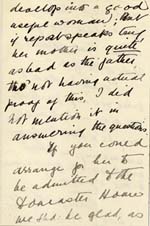 develop into a good
useful woman). But
if report speaks true
her mother is quite
as bad as the father,
tho' not having actual
proof of this, I did
not mention it in
answering the questions.
If you could
arrange for her to
be admitted to the
Doncaster Home
we shd. be glad, as